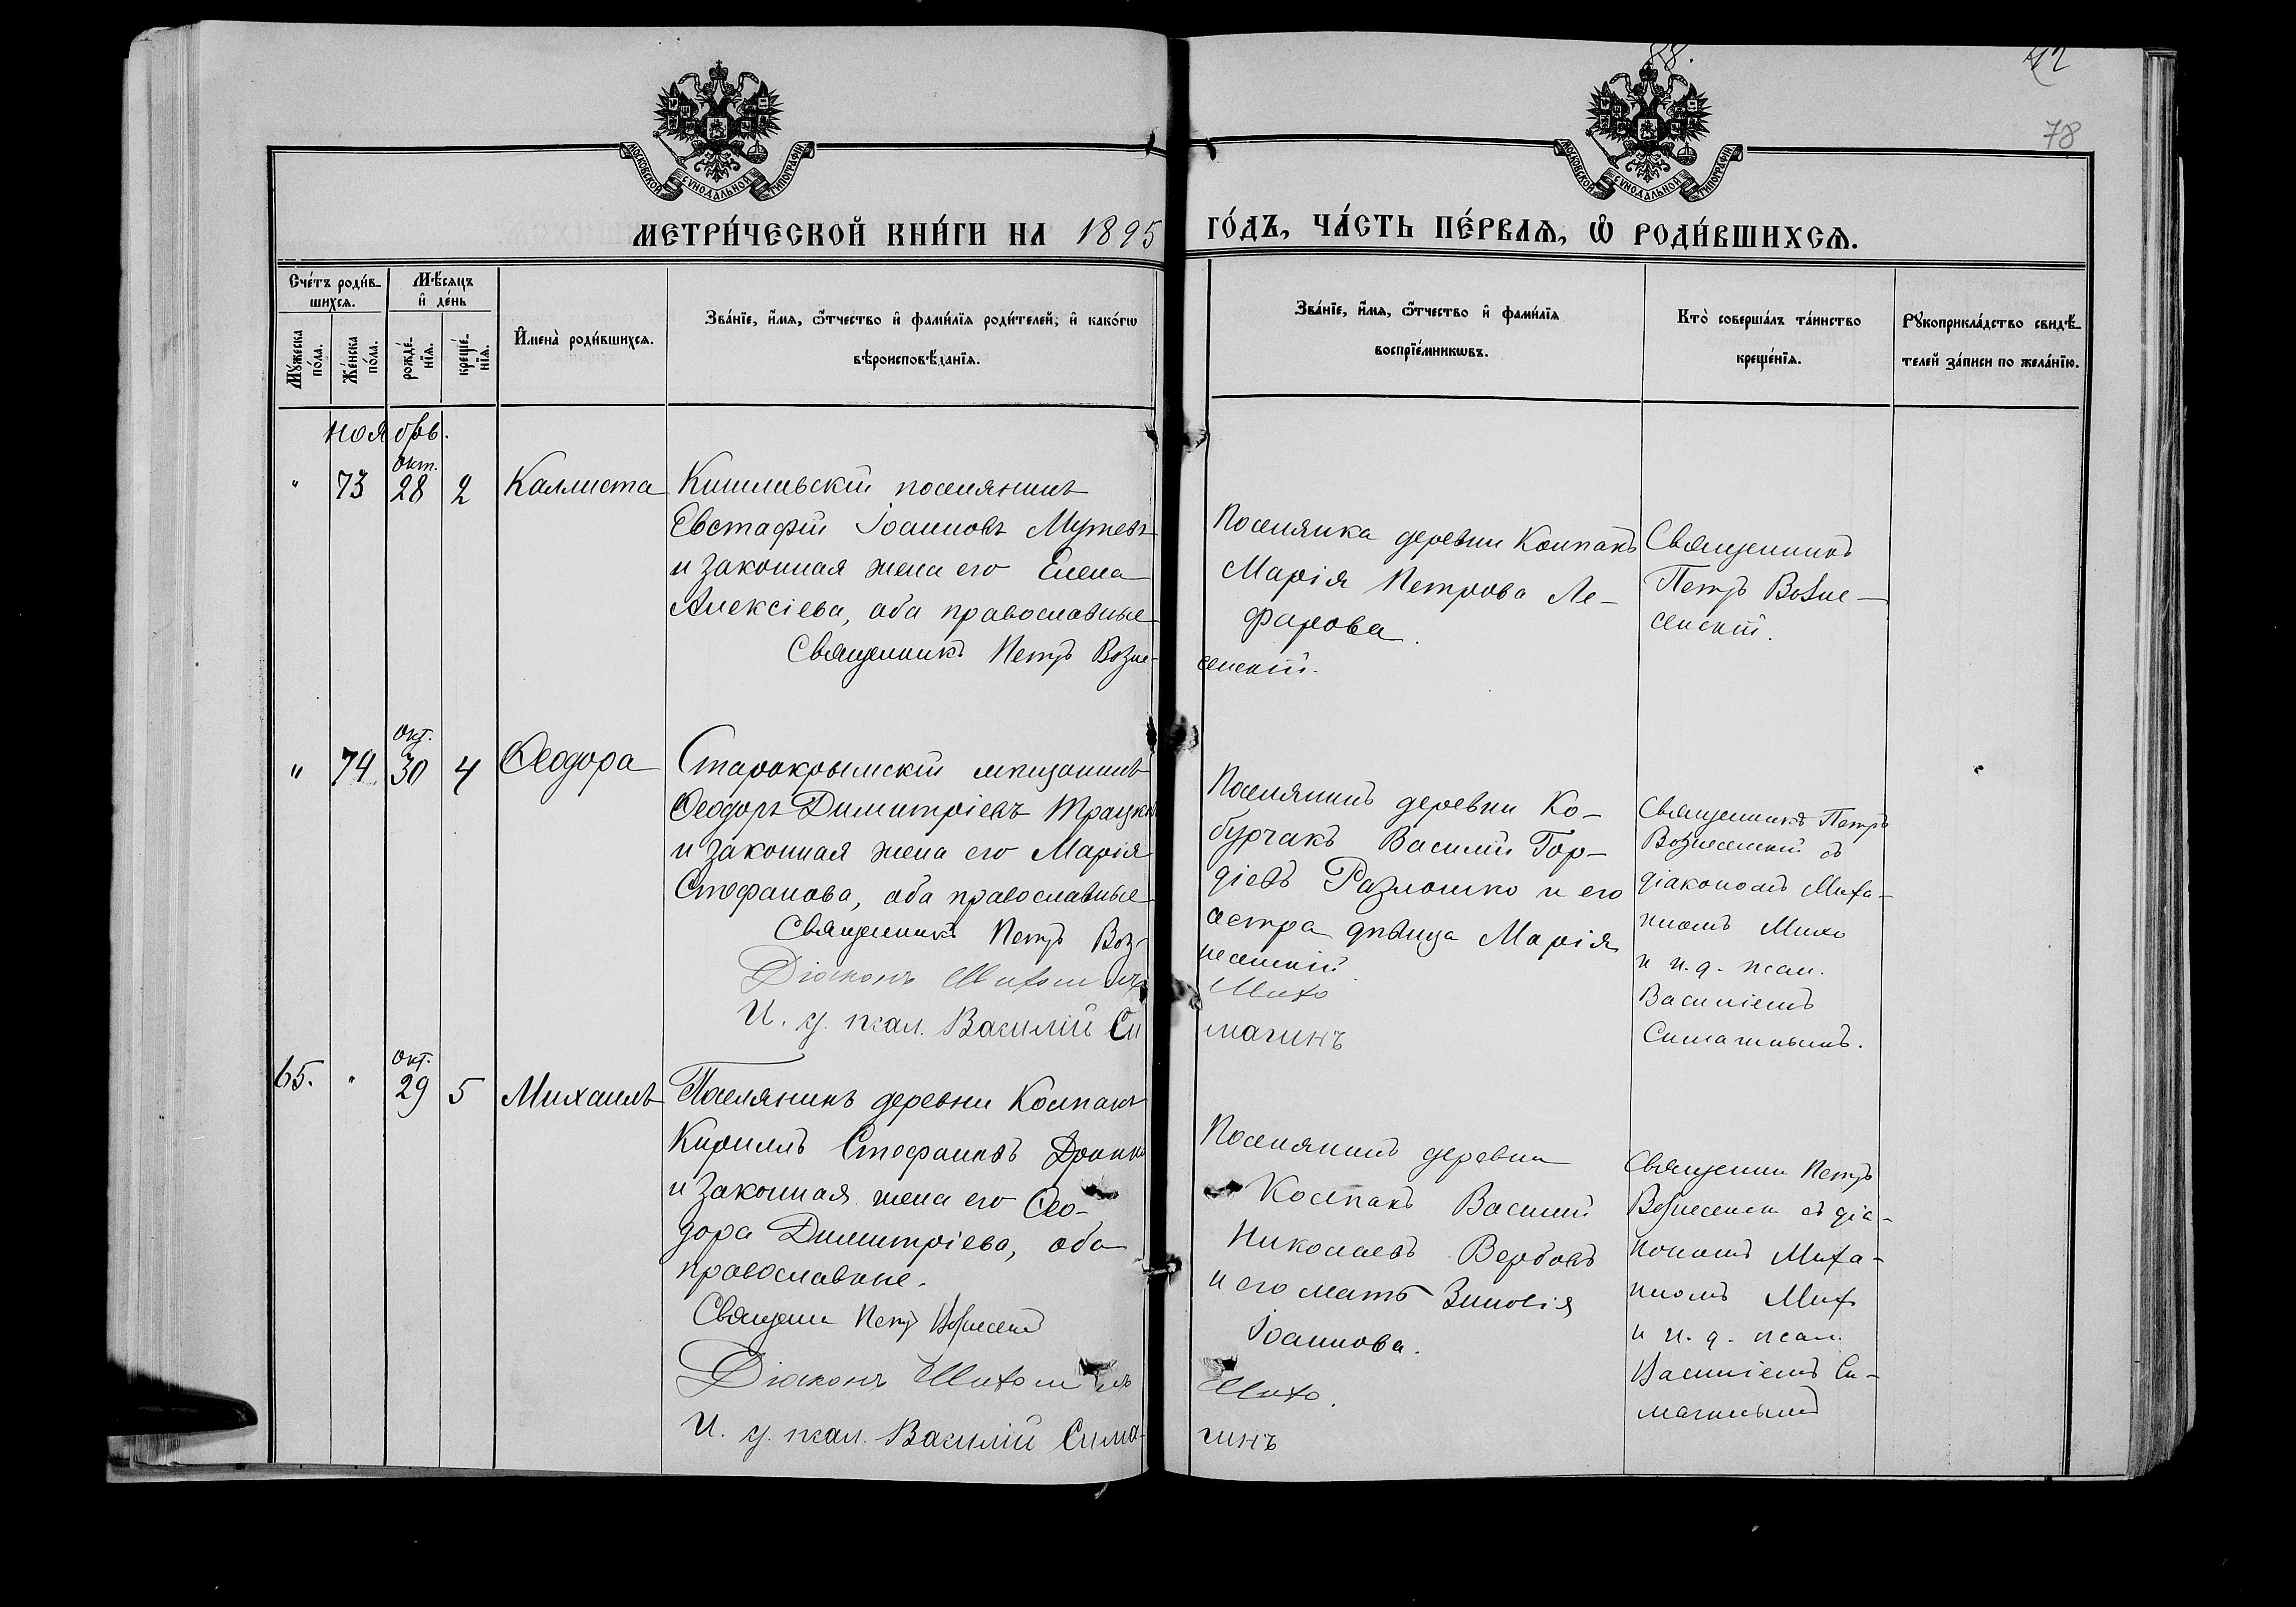 88.
42
78
МОСКОВСКОЙ СѴНОДАЛЬНОЙ ТИПОГРАФІИ
МОСКОВСКОЙ СѴНОДАЛЬНОЙ ТИПОГРАФІИ
МЕТРИ́ЧЕСКОЙ КНИ́ГИ НА 1895 ГО́ДЪ, ЧА́СТЬ ПЕ́РВАѦ, Ѡ҆ РОДИ́ВШИХСѦ.
Сче́тъ роди́в-
шихсѧ.
Мꙋ́жеска по́ла.
Же́нска по́ла.
Мѣ́сѧцъ
и҆ де́нь
рожде́-нїѧ.
креще́-нїѧ.
И҆мена̀ роди́вшихсѧ.
Зва́нїе, и҆́мѧ, ѻ҆́тчество и҆ фами́лїѧ роди́телей, и҆ како́гѡ
вѣроисповѣ́данїѧ.
Зва́нїе, и҆́мѧ, ѻ҆́тчество и҆ фами́лїѧ
воспрїе́мникѡвъ.
Кто̀ соверша́лъ та́инство
креще́нїѧ.
Рꙋкоприкла́дство свидѣ́-
телей за́писи по жела́нїю.
Ноябрь.
окт.
" 73 28 2 Каллиста
Кишлавскій поселянинъ
Евстафій Іоанновъ
и законная жена его Елена
Алексіева, оба православные
Священникъ Петръ Возне-
сенскій.
Поселянка деревни Колпакъ
Марія Петрова Ле-
фарова.
Священникъ
Петръ Возне-
сенскій.
окт.
" 74 30 4 Ѳеодора
Старокрымскій мѣщанинъ
Ѳеодоръ Димитріевъ
и законная жена его Марія
Стефанова, оба православные
Священникъ Петръ Воз-
несенскій
Діаконъ Михаилъ Михо
И. д. псал. Василій Си
магинъ
Поселянинъ деревни Ко-
бурчакъ Василій Гор-
діевъ и его
сестра дѣвица Марія
Священникъ Петръ
Вознесенскій съ
діакономъ Миха-
иломъ Михо
и и. д. псал.
Василіемъ
Симагинымъ.
окт.
65. " 29 5 Михаилъ
Поселянинъ деревни Колпакъ
Кириллъ Стефановъ
и законная жена его Ѳео-
дора Димитріева, оба
православные.
Священ Петр Вознесенс
Діаконъ Михаилъ Михо.
И. д. псал. Василій Сима-
гинъ
Поселянинъ деревни
Колпакъ Василій
Николаевъ Вербовъ
и его мать Зиновія
Іоаннова.
Священни Петръ
Вознесенск съ діа-
кономъ Миха-
иломъ Михо
и и. д. псал.
Василіемъ Си-
магинымъ